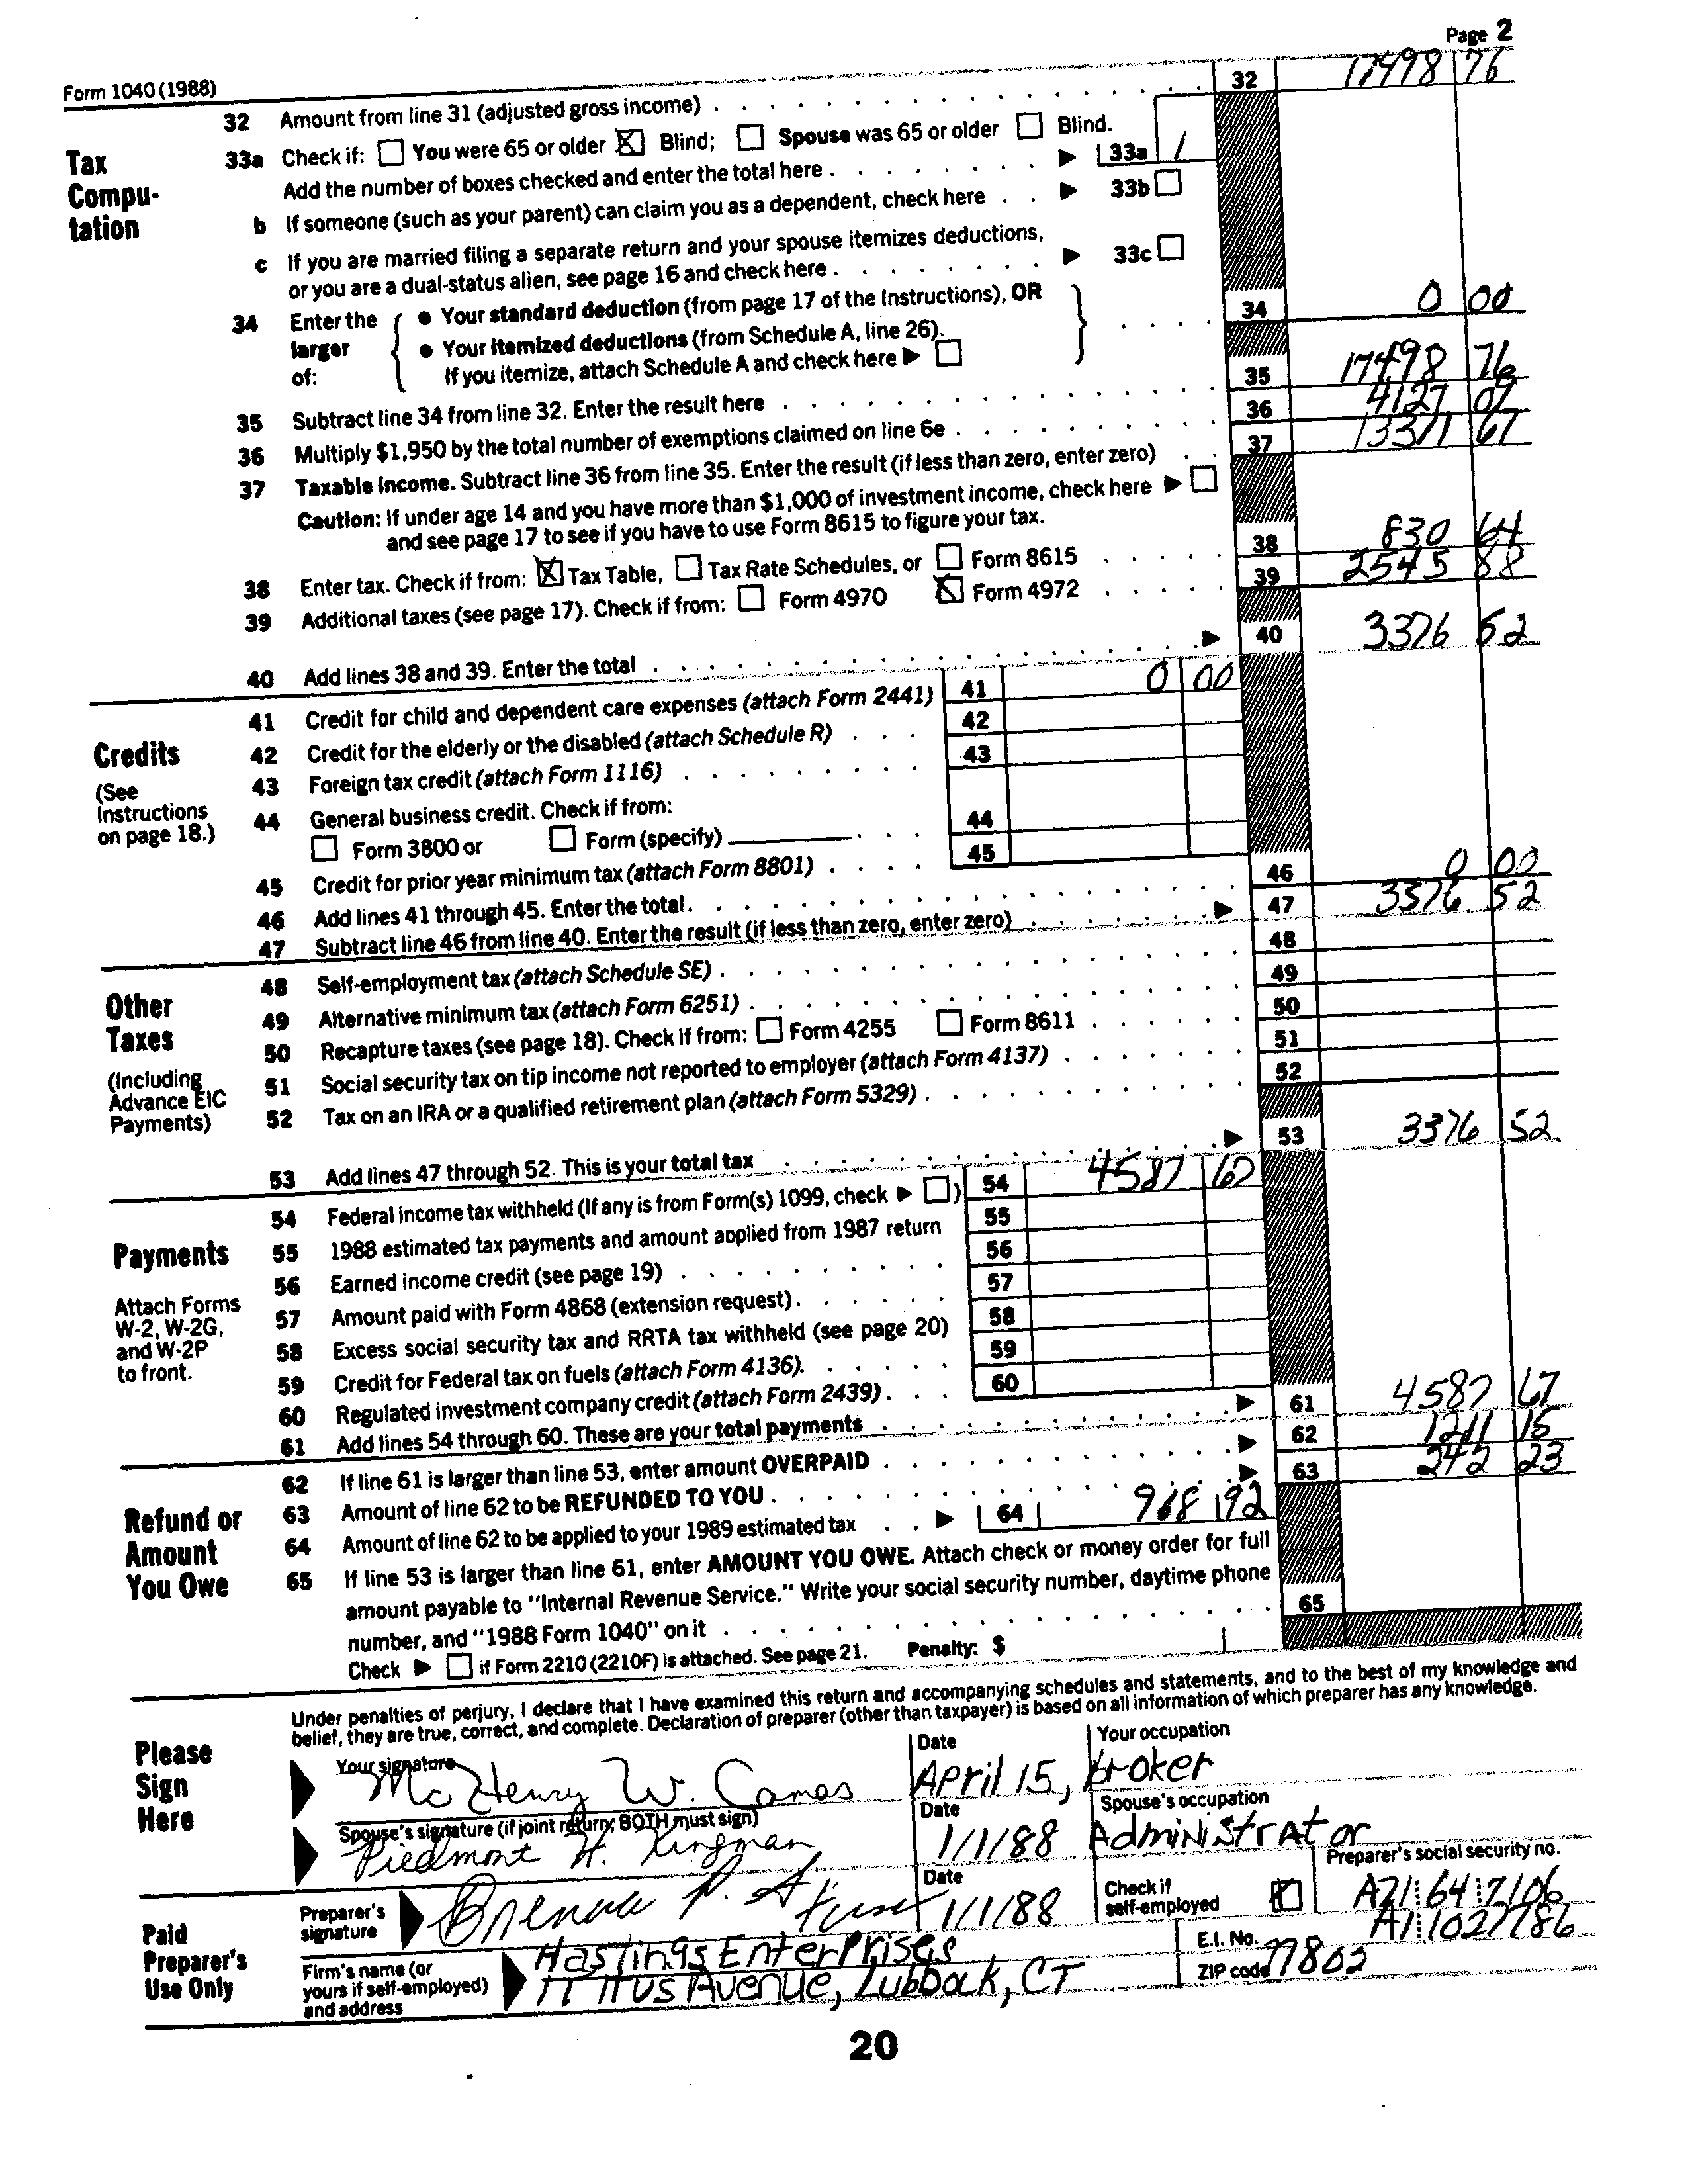 Page 2
Form 1040 (1988)
32 Amount from line 31 (adjusted gross income) 32 17498 76
Tax Compu-tation
33a Check if: You were 65 or older X Blind; Spouse was 65 or older Blind.
Add the number of boxes checked and enter the total here 33a 1
b If someone (such as your parent) can claim you as a dependent, check here 33b
c If you are married filing a separate return and your spouse itemizes deductions,
or you are a dual-status alien, see page 16 and check here 33c
34 Enter the larger of:
• Your standard deduction (from page 17 of the Instructions), OR
• Your itemized deductions (from Schedule A, line 26).
If you itemize, attach Schedule A and check here
34 0 00
35 Subtract line 34 from line 32. Enter the result here 35 17498 76
36 Multiply $1,950 by the total number of exemptions claimed on line 6e 36 4127 09
37 Taxable income. Subtract line 36 from line 35. Enter the result (if less than zero, enter zero) 37 13371 67
Caution: If under age 14 and you have more than $1,000 of investment income, check here
and see page 17 to see if you have to use Form 8615 to figure your tax.
38 Enter tax. Check if from: X Tax Table, Tax Rate Schedules, or Form 8615 38 830 64
39 Additional taxes (see page 17). Check if from: Form 4970 X Form 4972 39 2545 88
40 Add lines 38 and 39. Enter the total 40 3376 52
Credits
(See Instructions on page 18.)
41 Credit for child and dependent care expenses (attach Form 2441) 41 0 00
42 Credit for the elderly or the disabled (attach Schedule R) 42
43 Foreign tax credit (attach Form 1116) 43
44 General business credit. Check if from:
Form 3800 or Form (specify) 44
45 Credit for prior year minimum tax (attach Form 8801) 45
46 Add lines 41 through 45. Enter the total 46 0 00
47 Subtract line 46 from line 40. Enter the result (if less than zero, enter zero) 47 3376 52
Other Taxes
(Including Advance EIC Payments)
48 Self-employment tax (attach Schedule SE) 48
49 Alternative minimum tax (attach Form 6251) 49
50 Recapture taxes (see page 18). Check if from: Form 4255 Form 8611 50
51 Social security tax on tip income not reported to employer (attach Form 4137) 51
52 Tax on an IRA or a qualified retirement plan (attach Form 5329) 52
53 Add lines 47 through 52. This is your total tax 53 3376 52
Payments
Attach Forms W-2, W-2G, and W-2P to front.
54 Federal income tax withheld (If any is from Form(s) 1099, check ) 54 4587 67
55 1988 estimated tax payments and amount applied from 1987 return 55
56 Earned income credit (see page 19) 56
57 Amount paid with Form 4868 (extension request) 57
58 Excess social security tax and RRTA tax withheld (see page 20) 58
59 Credit for Federal tax on fuels (attach Form 4136) 59
60 Regulated investment company credit (attach Form 2439) 60
61 Add lines 54 through 60. These are your total payments 61 4587 67
Refund or Amount You Owe
62 If line 61 is larger than line 53, enter amount OVERPAID 62 1211 15
63 Amount of line 62 to be REFUNDED TO YOU 63 242 23
64 Amount of line 62 to be applied to your 1989 estimated tax 64 968 92
65 If line 53 is larger than line 61, enter AMOUNT YOU OWE. Attach check or money order for full
amount payable to "Internal Revenue Service." Write your social security number, daytime phone
number, and "1988 Form 1040" on it 65
Check if Form 2210 (2210F) is attached. See page 21. Penalty: $
Please Sign Here
Under penalties of perjury, I declare that I have examined this return and accompanying schedules and statements, and to the best of my knowledge and
belief, they are true, correct, and complete. Declaration of preparer (other than taxpayer) is based on all information of which preparer has any knowledge.
Your signature McHenry W. Camas Date April 15, Your occupation broker
Spouse's signature (if joint return, BOTH must sign) Piedmont H. Kingman Date 1/1/88 Spouse's occupation Administrator
Paid Preparer's Use Only
Preparer's signature Brenda P. Date 1/1/88 Check if self-employed X Preparer's social security no. A21 64 7106
Firm's name (or yours if self-employed) and address Hastings Enterprises E.I. No. A1 1027786
Titus Avenue, Lubbock, CT ZIP code 77802
20